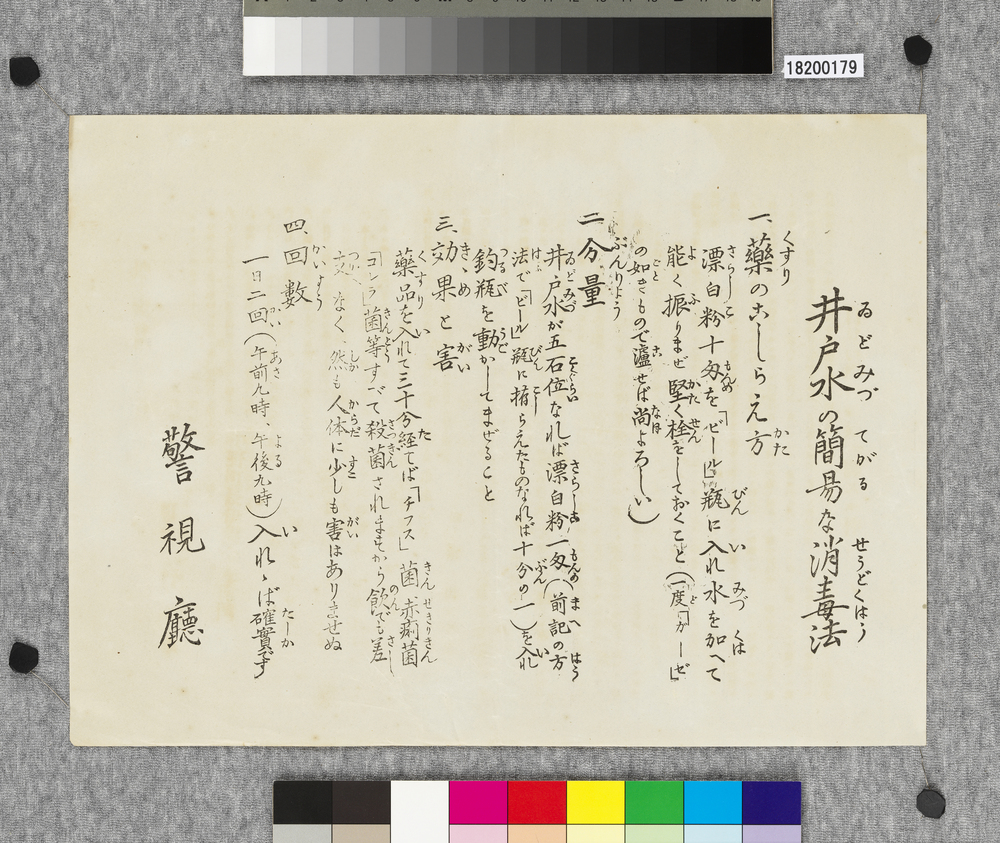 18200179
井戸水の簡易な消毒法
一、藥のこしらえ方
漂白粉十匁を「ビール」瓶に入れ水を加へて
能く振りまぜ堅く栓をしておくこと(一度「ガーゼ」
の如きもので濾せば尚よろしい)
二、分量
井戸水が五石位なれば漂白粉一匁(前記の方
法で「ビール」瓶に拵らえたものなれば十分の一)を入れ
釣瓶を動かしてまぜること
三、効果と害
藥品を入れて三十分経てば「チフス」菌、赤痢菌
「コレラ」菌等すべて殺菌されますから飲んでも差
支なく、然も人体に少しも害はありませぬ
四、回數
一日二回(午前九時、午後九時)入れゝば確實です
警視廳